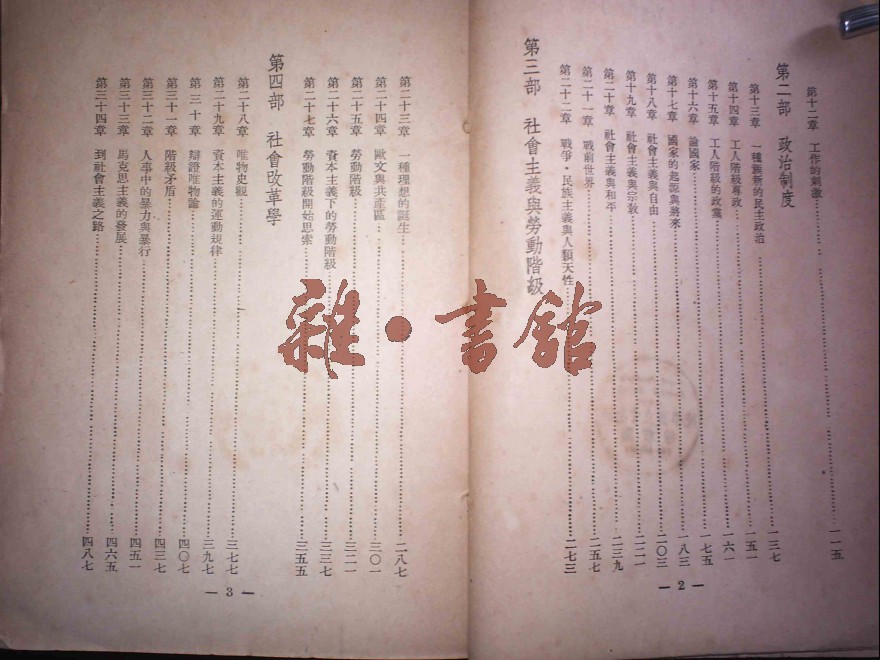 第十二章 工作的刺激 一一五
第二部 政治制度
第十三章 一種嶄新的民主政治 一三七
第十四章 工人階級專政 一五一
第十五章 工人階級的政黨 一六一
第十六章 論國家 一七五
第十七章 國家的起源與將來 一八三
第十八章 社會主義與自由 二〇三
第十九章 社會主義與宗教 二二一
第二十章 社會主義與和平 二三九
第二十一章 戰前世界 二五七
第二十二章 戰爭・民族主義與人類天性 二七三
第三部 社會主義與勞動階級
— 2 —
第二十三章 一種理想的誕生 二八七
第二十四章 歐文與共產區 三〇一
第二十五章 勞動階級 三二一
第二十六章 資本主義下的勞動階級 三三七
第二十七章 勞動階級開始思索 三五五
第四部 社會改革學
第二十八章 唯物史觀 三七七
第二十九章 資本主義的運動規律 三九七
第三十章 辯證唯物論 四〇七
第三十一章 階級矛盾 四三七
第三十二章 人事中的暴力與暴行 四五一
第三十三章 馬克思主義的發展 四六五
第三十四章 到社會主義之路 四八七
— 3 —
雜・書館